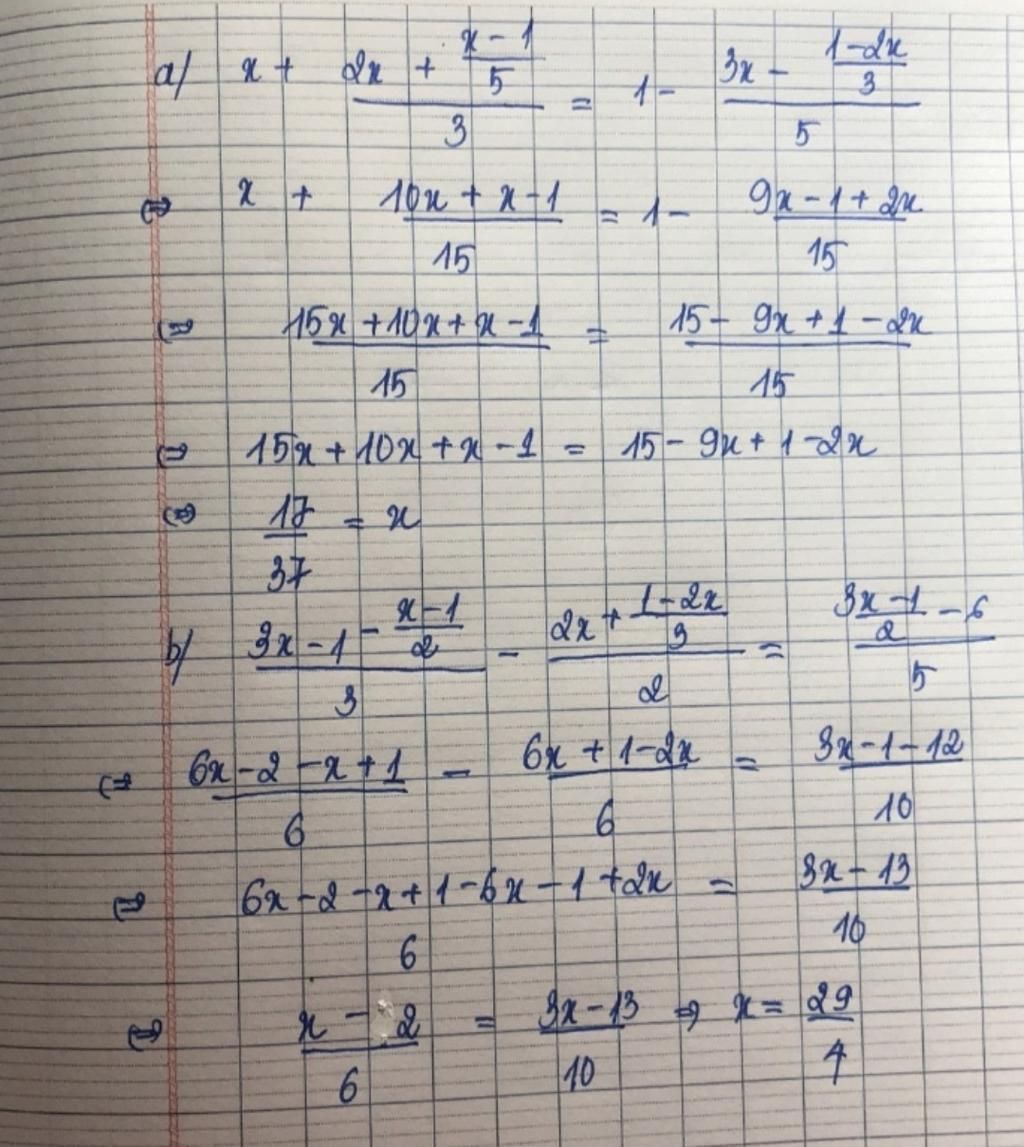 a/ x + (2x + (x-1)/5)/3 = 1 - (3x - (1-2x)/3)/5
⇔ x + (10x + x - 1)/15 = 1 - (9x - 1 + 2x)/15
⇔ (15x + 10x + x - 1)/15 = (15 - 9x + 1 - 2x)/15
⇔ 15x + 10x + x - 1 = 15 - 9x + 1 - 2x
⇔ 17/37 = x
b/ (3x - 1 - (x-1)/2)/3 - (2x + (1-2x)/3)/2 = ((3x-1)/2 - 6)/5
⇔ (6x - 2 - x + 1)/6 - (6x + 1 - 2x)/6 = (3x - 1 - 12)/10
⇔ (6x - 2 - x + 1 - 6x - 1 + 2x)/6 = (3x - 13)/10
⇔ (x - 2)/6 = (3x - 13)/10 ⇒ x = 29/4